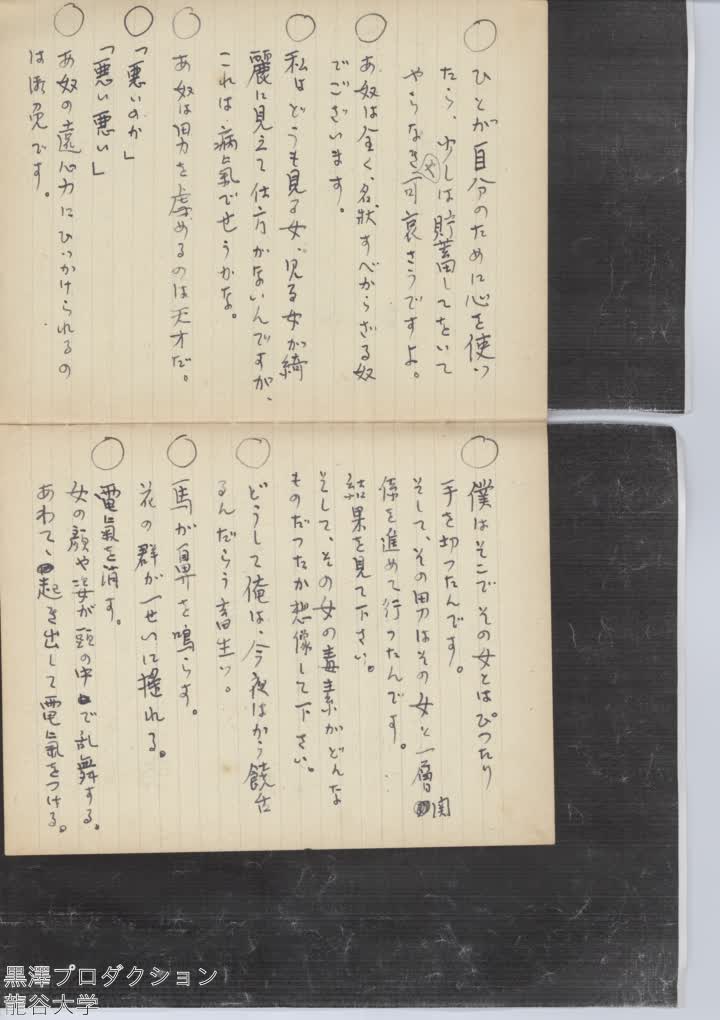 ○ ひとが自分のために心を使つ
たら、少しは貯蓄してをいて
やらなきや可哀さうですよ。
○ あ奴は全く、名状すべからざる奴
でございます。
○ 私はどうも見る女、見る女が綺
麗に見えて仕方がないんですが、
これは病気でせうかな。
○ あ奴は男を虐めるのは天才だ。
○ 「悪いのか」
「悪い悪い」
○ あ奴の遠心力にひつかけられるの
は御免です。
○ 僕はそこでその女とはぴつたり
手を切つたんです。
そして、その男はその女と一層関
係を進めて行つたんです。
結果を見て下さい。
そして、その女の毒素がどんな
ものだつたか想像して下さい。
○ どうして俺は、今夜はかう饒舌
るんだらう畜生ッ。
○ 馬が鼻を鳴らす。
花の群が一せいに揺れる。
○ 電氣を消す。
女の顔や姿が頭の中で乱舞する。
あわてゝ起き出して電氣をつける。
黒澤プロダクション
龍谷大学